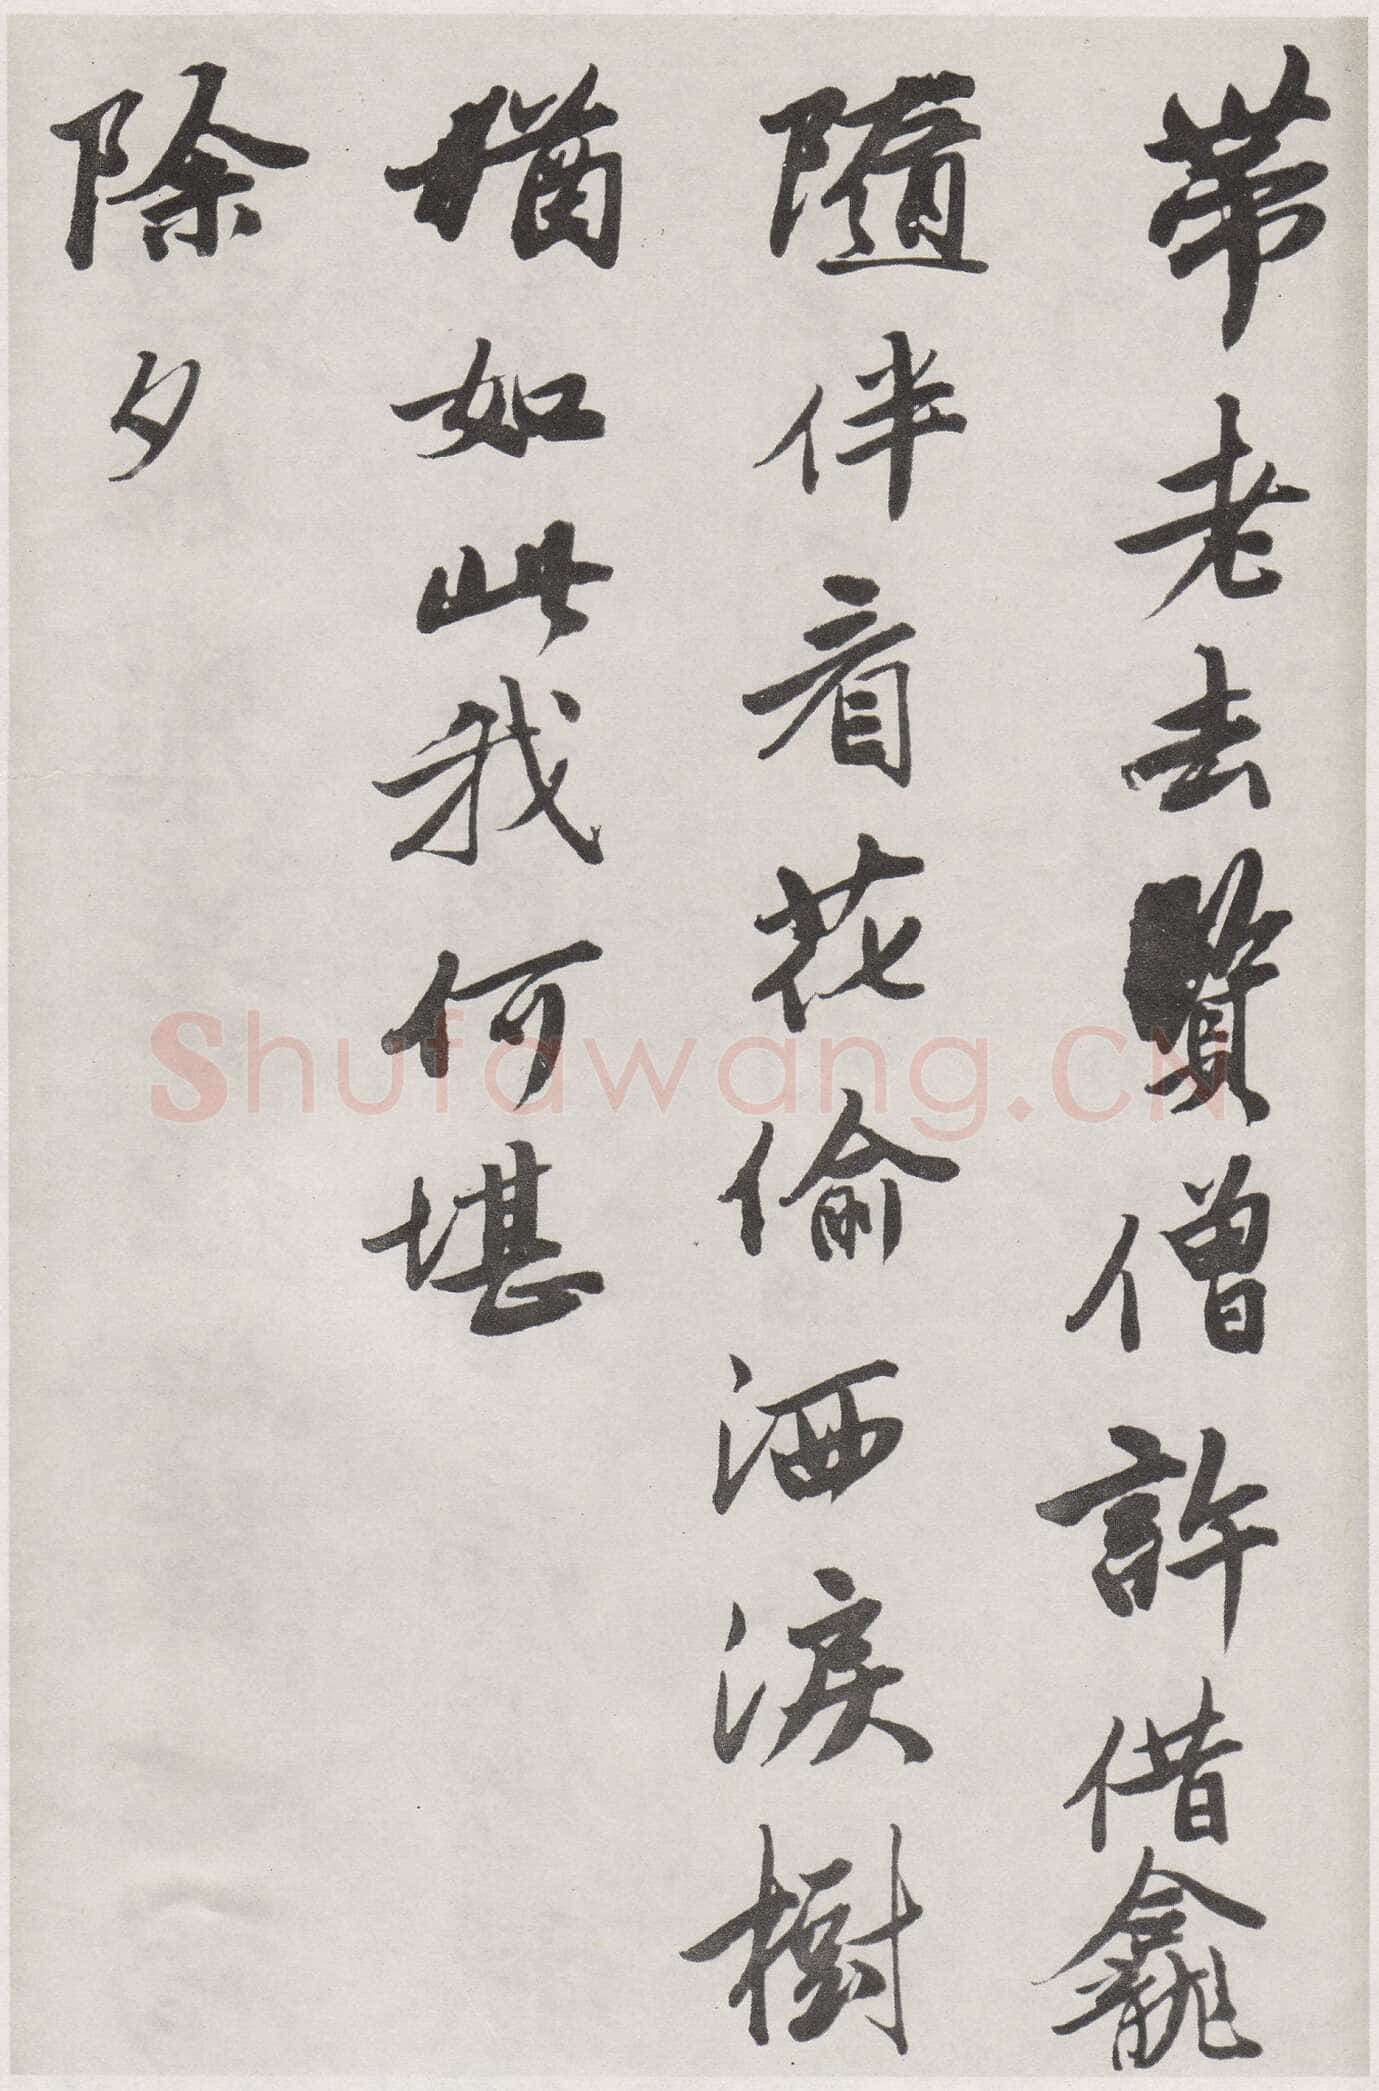 帶老去賢僧許借龕
隨伴看花偷洒淚樹
猶如此我何堪
除夕
Shufawang.CN